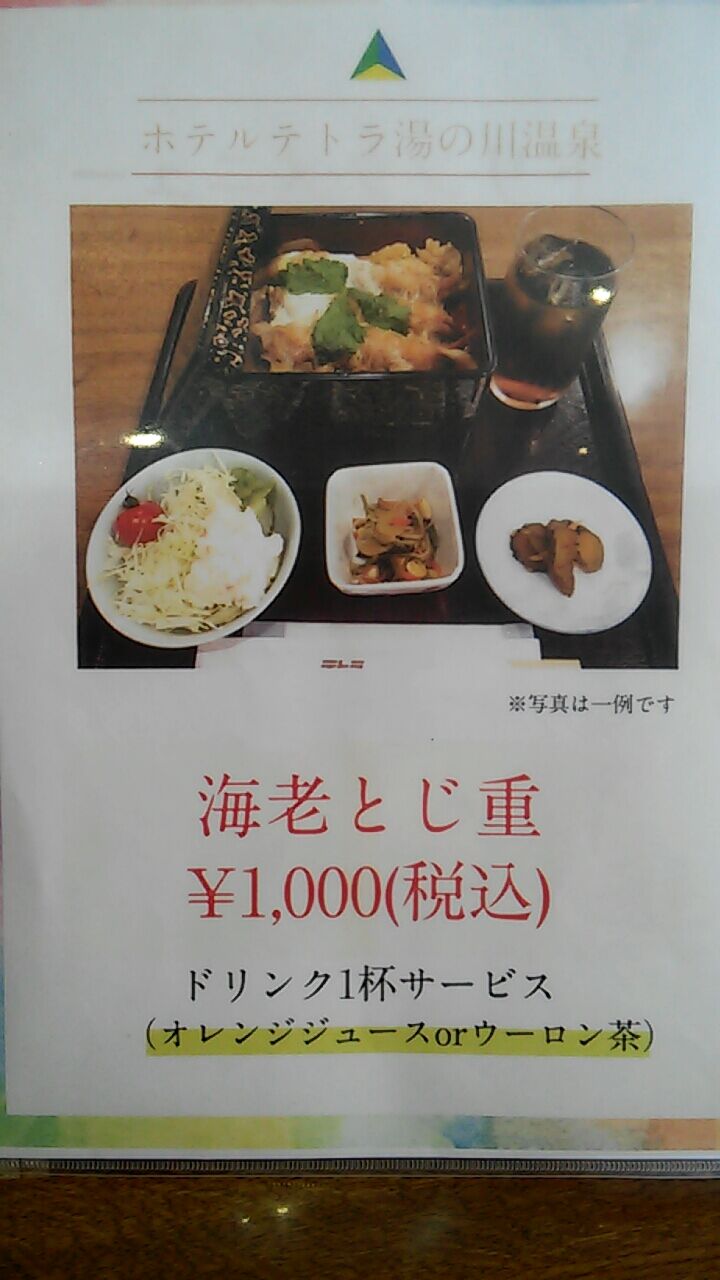 ホテルテトラ湯の川温泉
テトラ
※写真は一例です
海老とじ重
¥1,000(税込)
ドリンク1杯サービス
(オレンジジュースorウーロン茶)